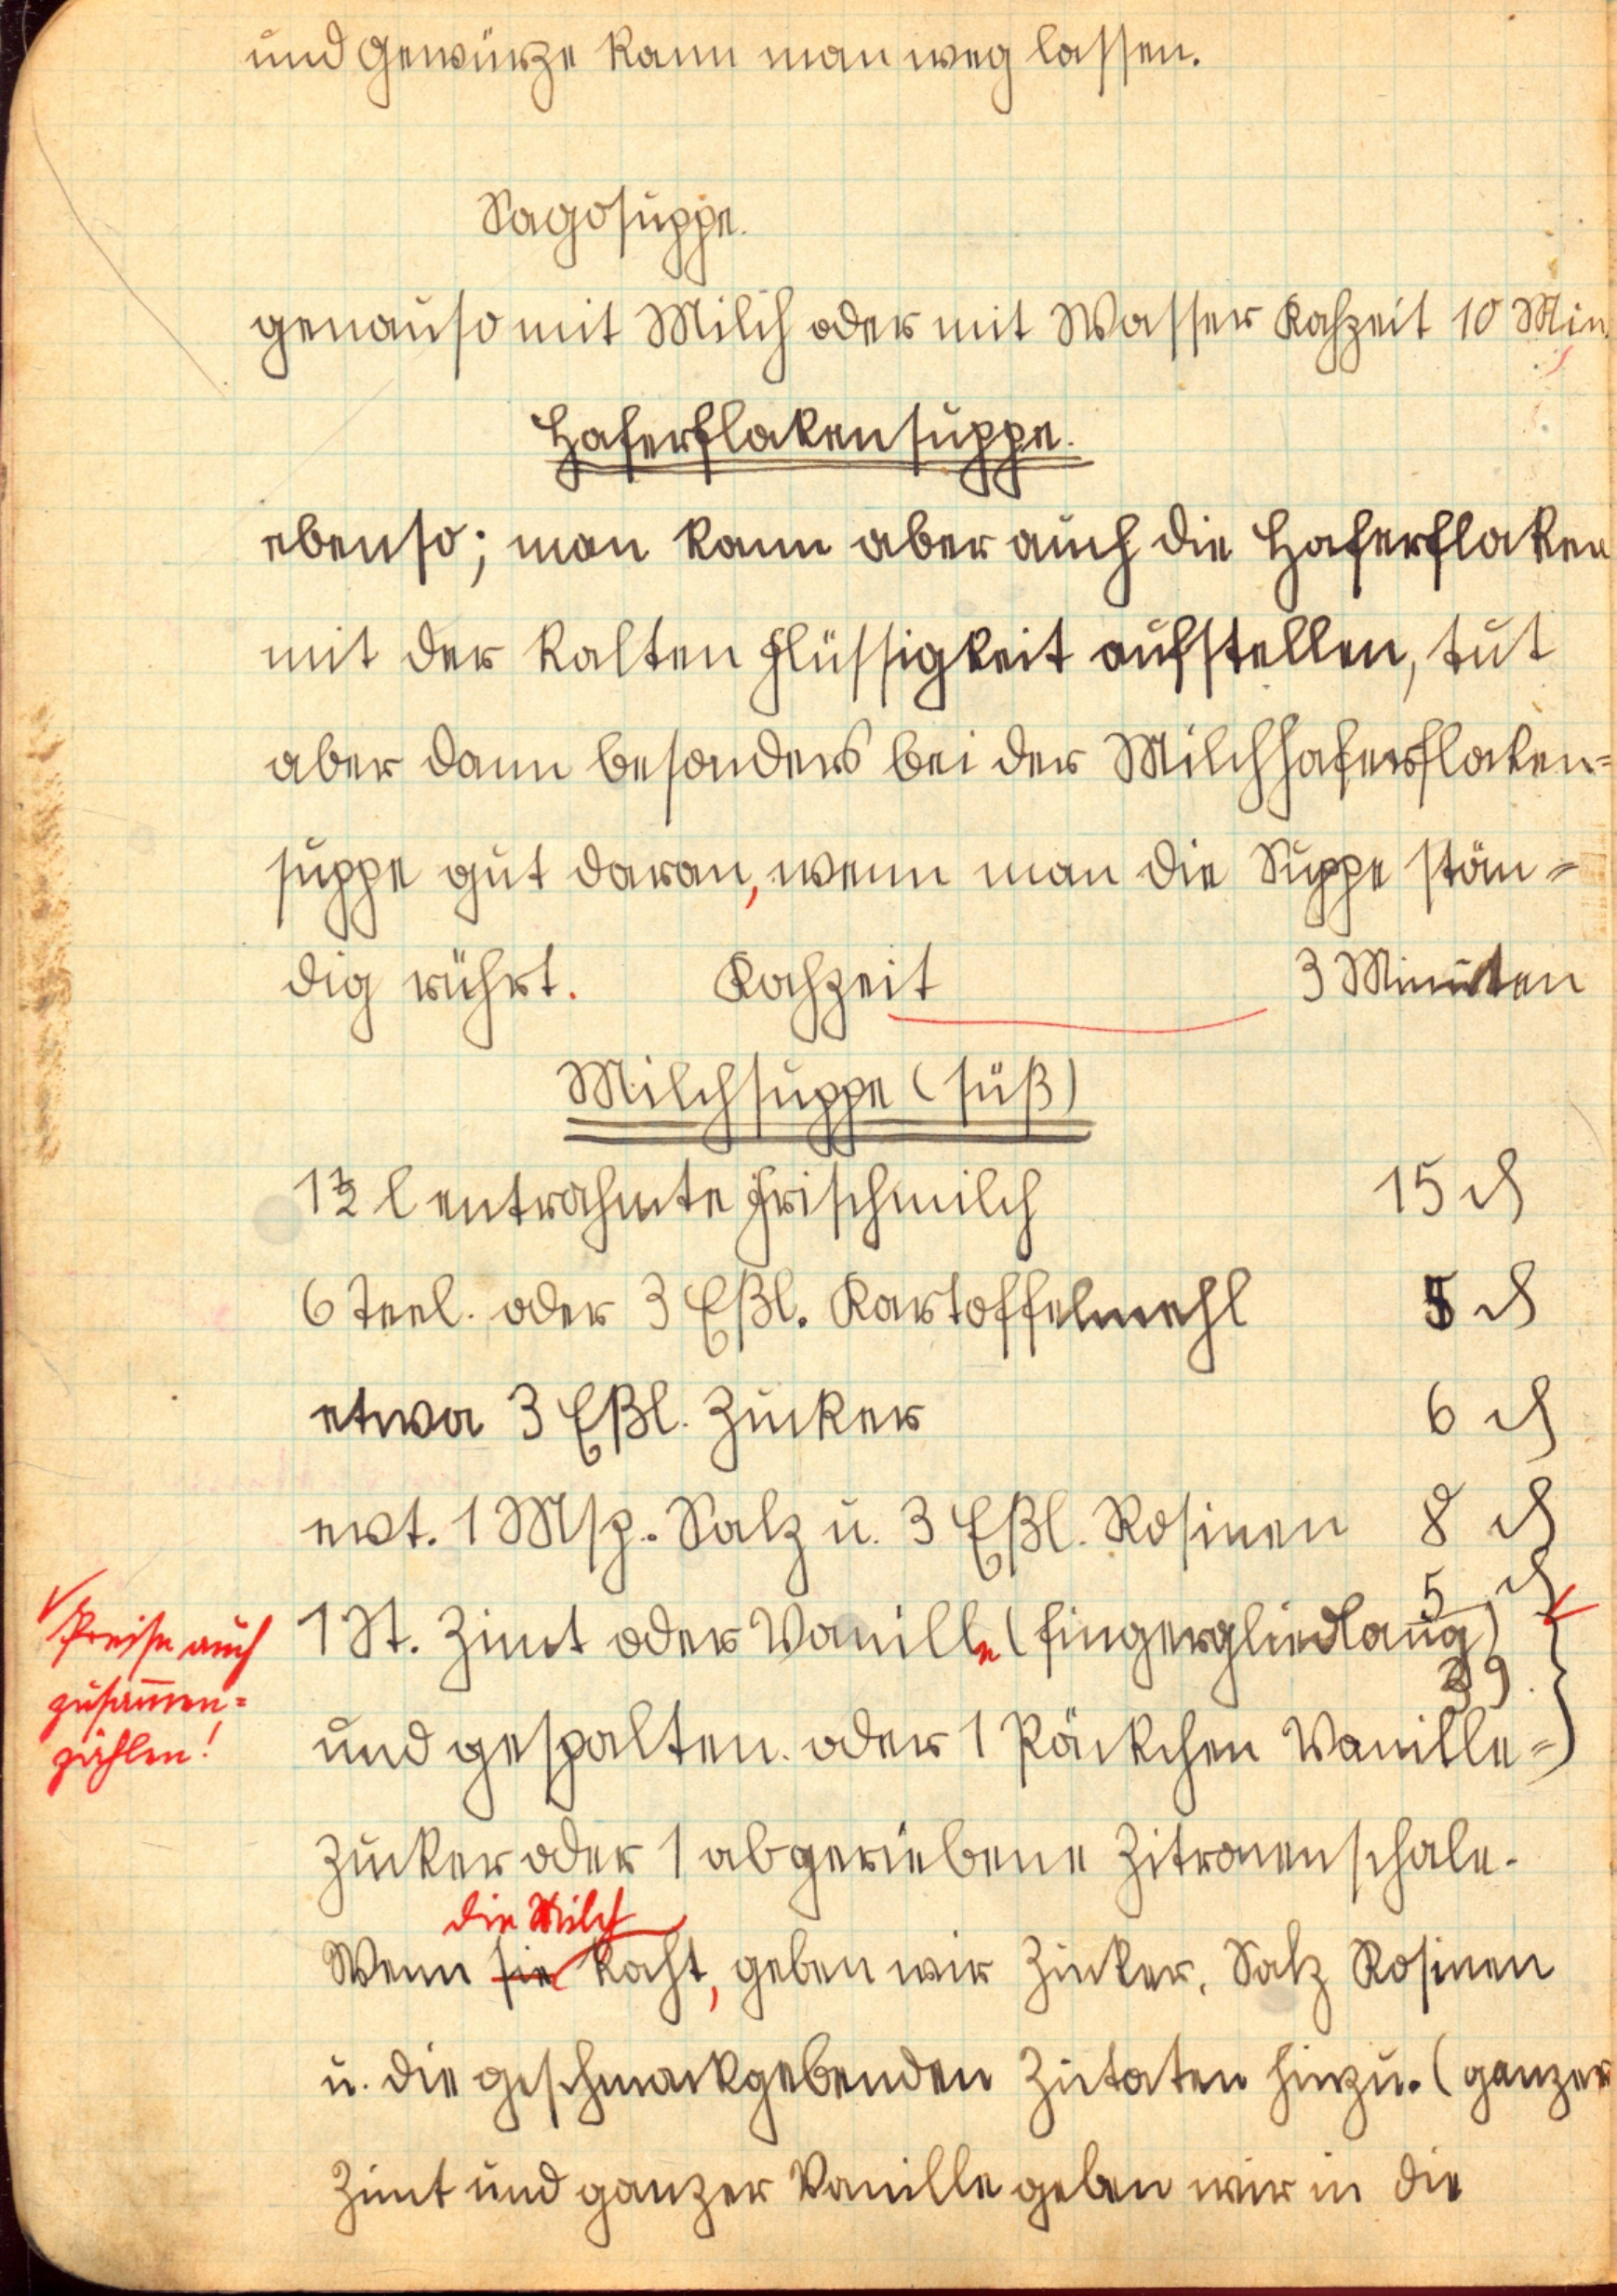 und Gewürze kann man weg lassen.
Sagosuppe.
genauso mit Milch oder mit Wasser Kochzeit 10 Min.
Haferflokensuppe.
ebenso; man kann aber auch die Haferfloken
mit der kalten Flüssigkeit aufstellen, tut
aber dann besonders bei der Milchhaferfloken=
suppe gut daran, wenn man die Suppe stän=
dig rührt. Kochzeit 3 Minuten
Milchsuppe (süß)
1½ l entrahmte Frischmilch 15 ₰
6 Teel. oder 3 Eßl. Kartoffelmehl 5 ₰
etwa 3 Eßl. Zucker 6 ₰
evt. 1 Msp. Salz u. 3 Eßl. Rosinen 8 ₰
5 ₰
1 St. Zimt oder Vanille (fingergliedlang)
39
Preise auch
zusammen=
zählen!
und gespalten. oder 1 Päckchen Vanille=
zucker oder 1 abgeriebene Zitronenschale.
die Milch
Wenn sie kocht, geben wir Zucker, Salz Rosinen
u. die geschmackgebenden Zutaten hinzu. (ganzer
Zimt und ganzer Vanille geben wir in die